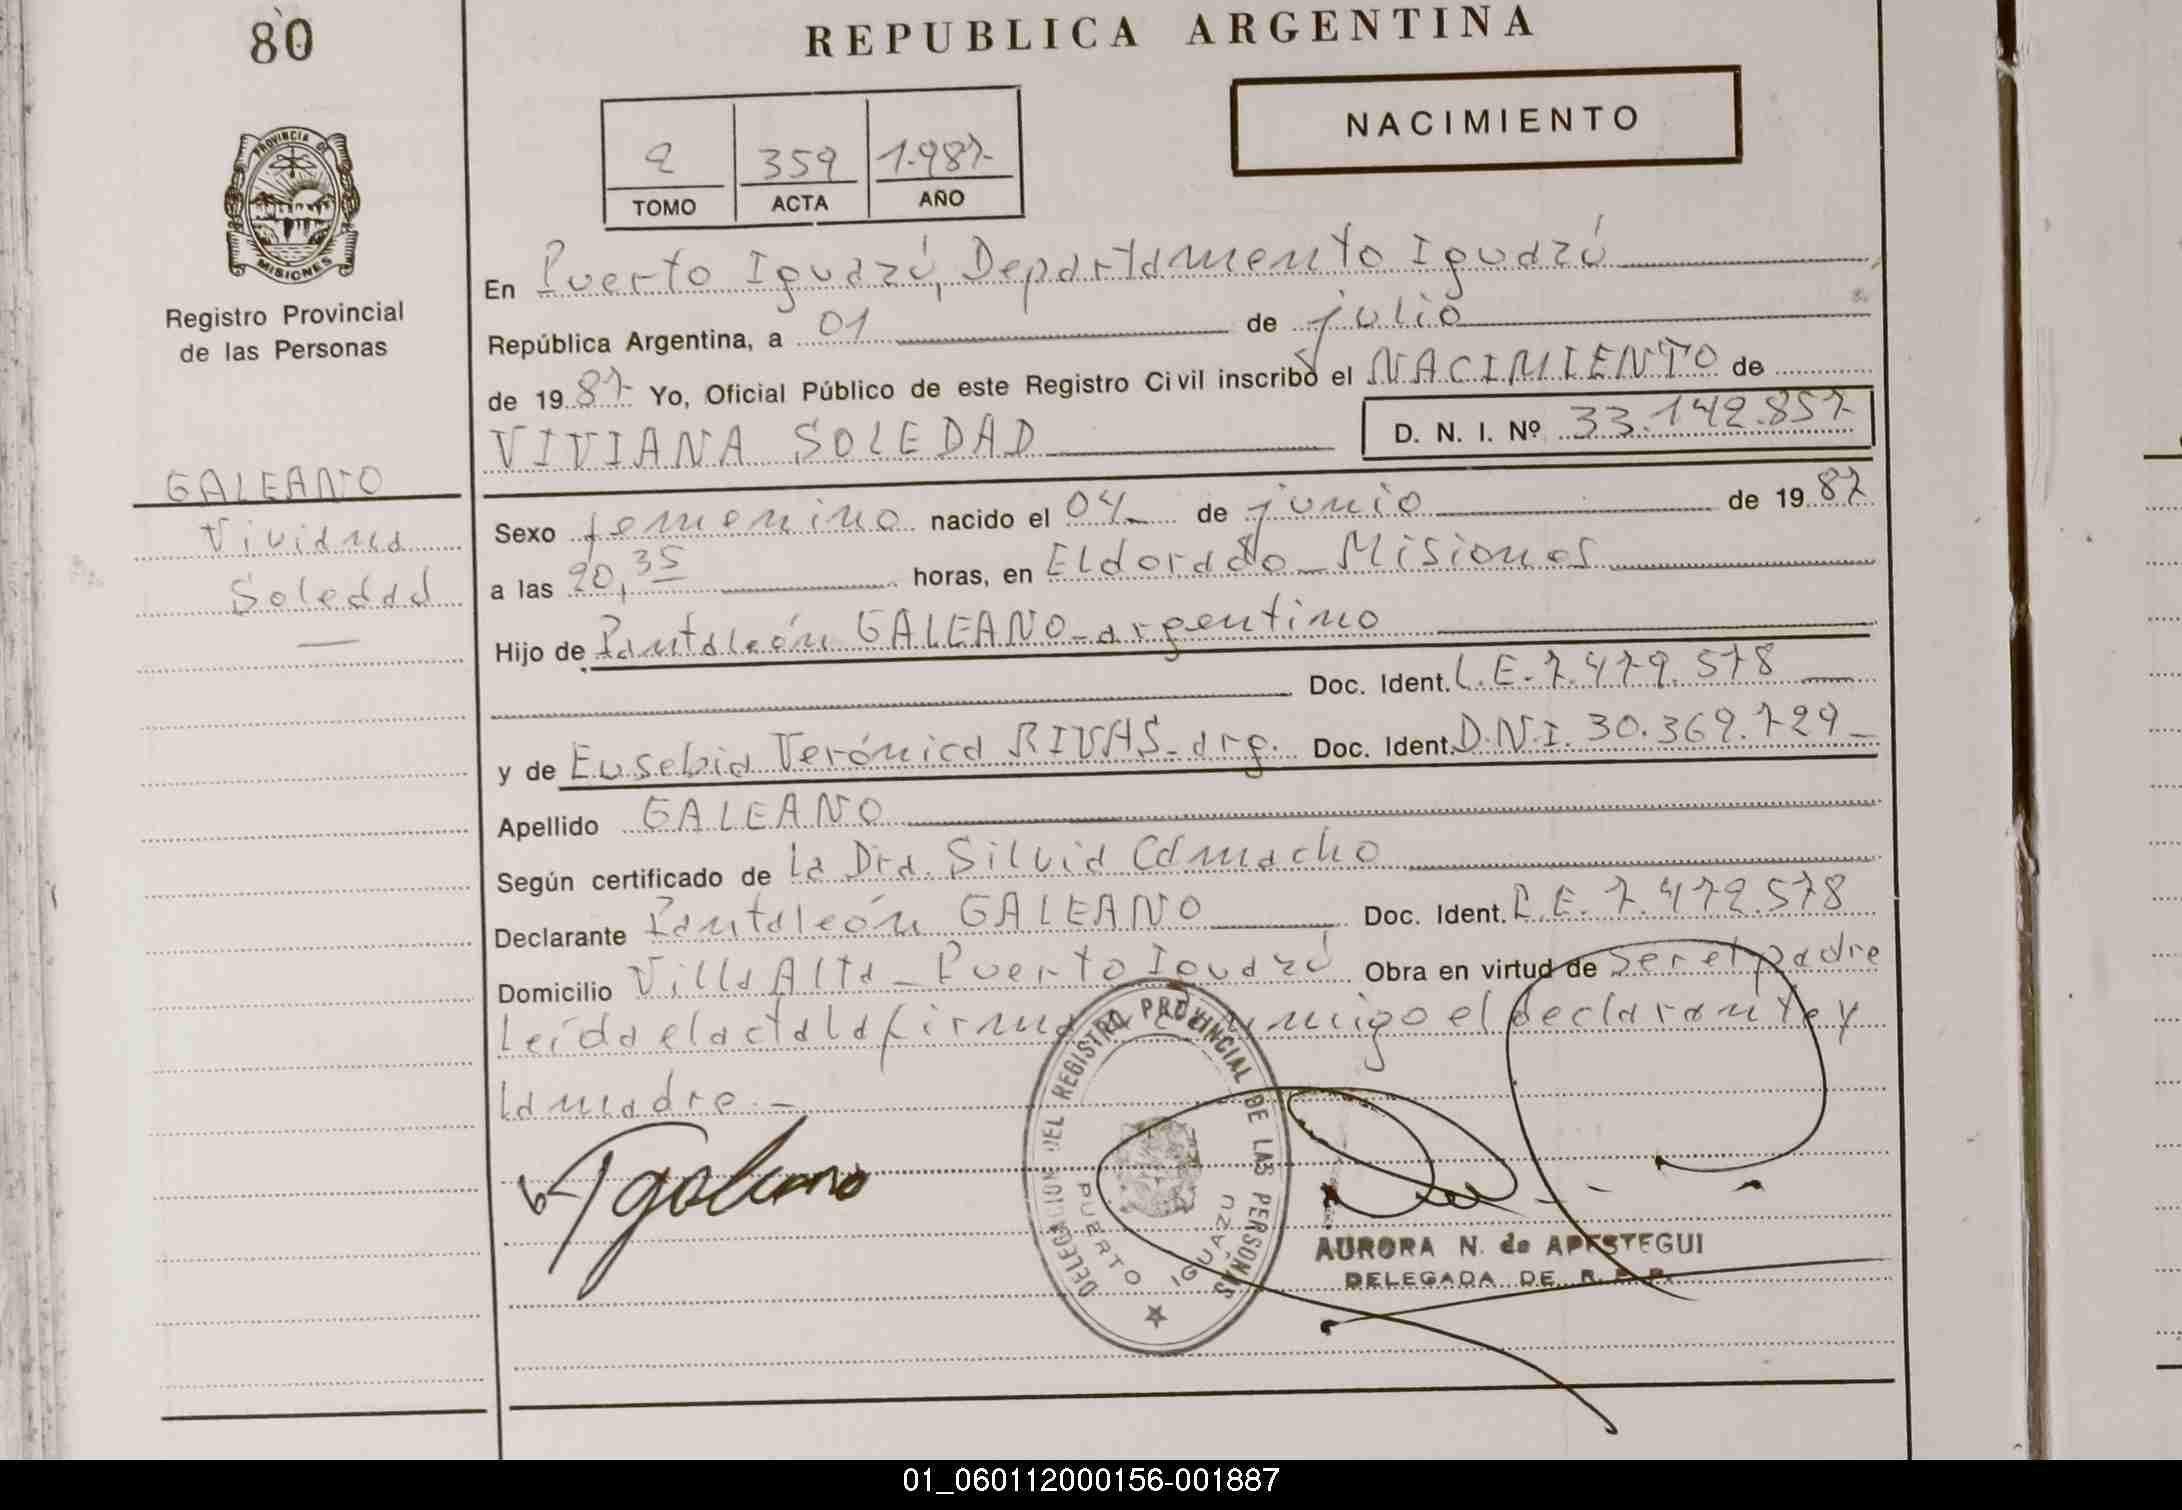 80
REPUBLICA ARGENTINA
NACIMIENTO
2 359 1.987
TOMO ACTA AÑO
PROVINCIA DE
MISIONES
Registro Provincial
de las Personas
GALEANO
Viviana
Soledad
En Puerto Iguazú, Departamento Iguazú
República Argentina, a 01 de julio
de 1987 Yo, Oficial Público de este Registro Civil inscribo el NACIMIENTO de
VIVIANA SOLEDAD D. N. I. Nº 33.142.857
Sexo femenino nacido el 04 de junio de 1987
a las 20,35 horas, en Eldorado - Misiones
Hijo de Pantaleón GALEANO - argentino
Doc. Ident. L.E. 7.479.578
y de Eusebia Verónica RIVAS - arg. Doc. Ident. D.N.I. 30.369.729
Apellido GALEANO
Según certificado de la Dra. Silvia Camacho
Declarante Pantaleón GALEANO Doc. Ident. L.E. 7.479.578
Domicilio Villa Alta - Puerto Iguazú Obra en virtud de ser el padre
Leída el acta la firman conmigo el declarante y
la madre. -
galeano
DELEGACION DEL REGISTRO PROVINCIAL DE LAS PERSONAS
PUERTO IGUAZU
AURORA N. de APESTEGUI
DELEGADA DE R. P. P.
01_060112000156-001887